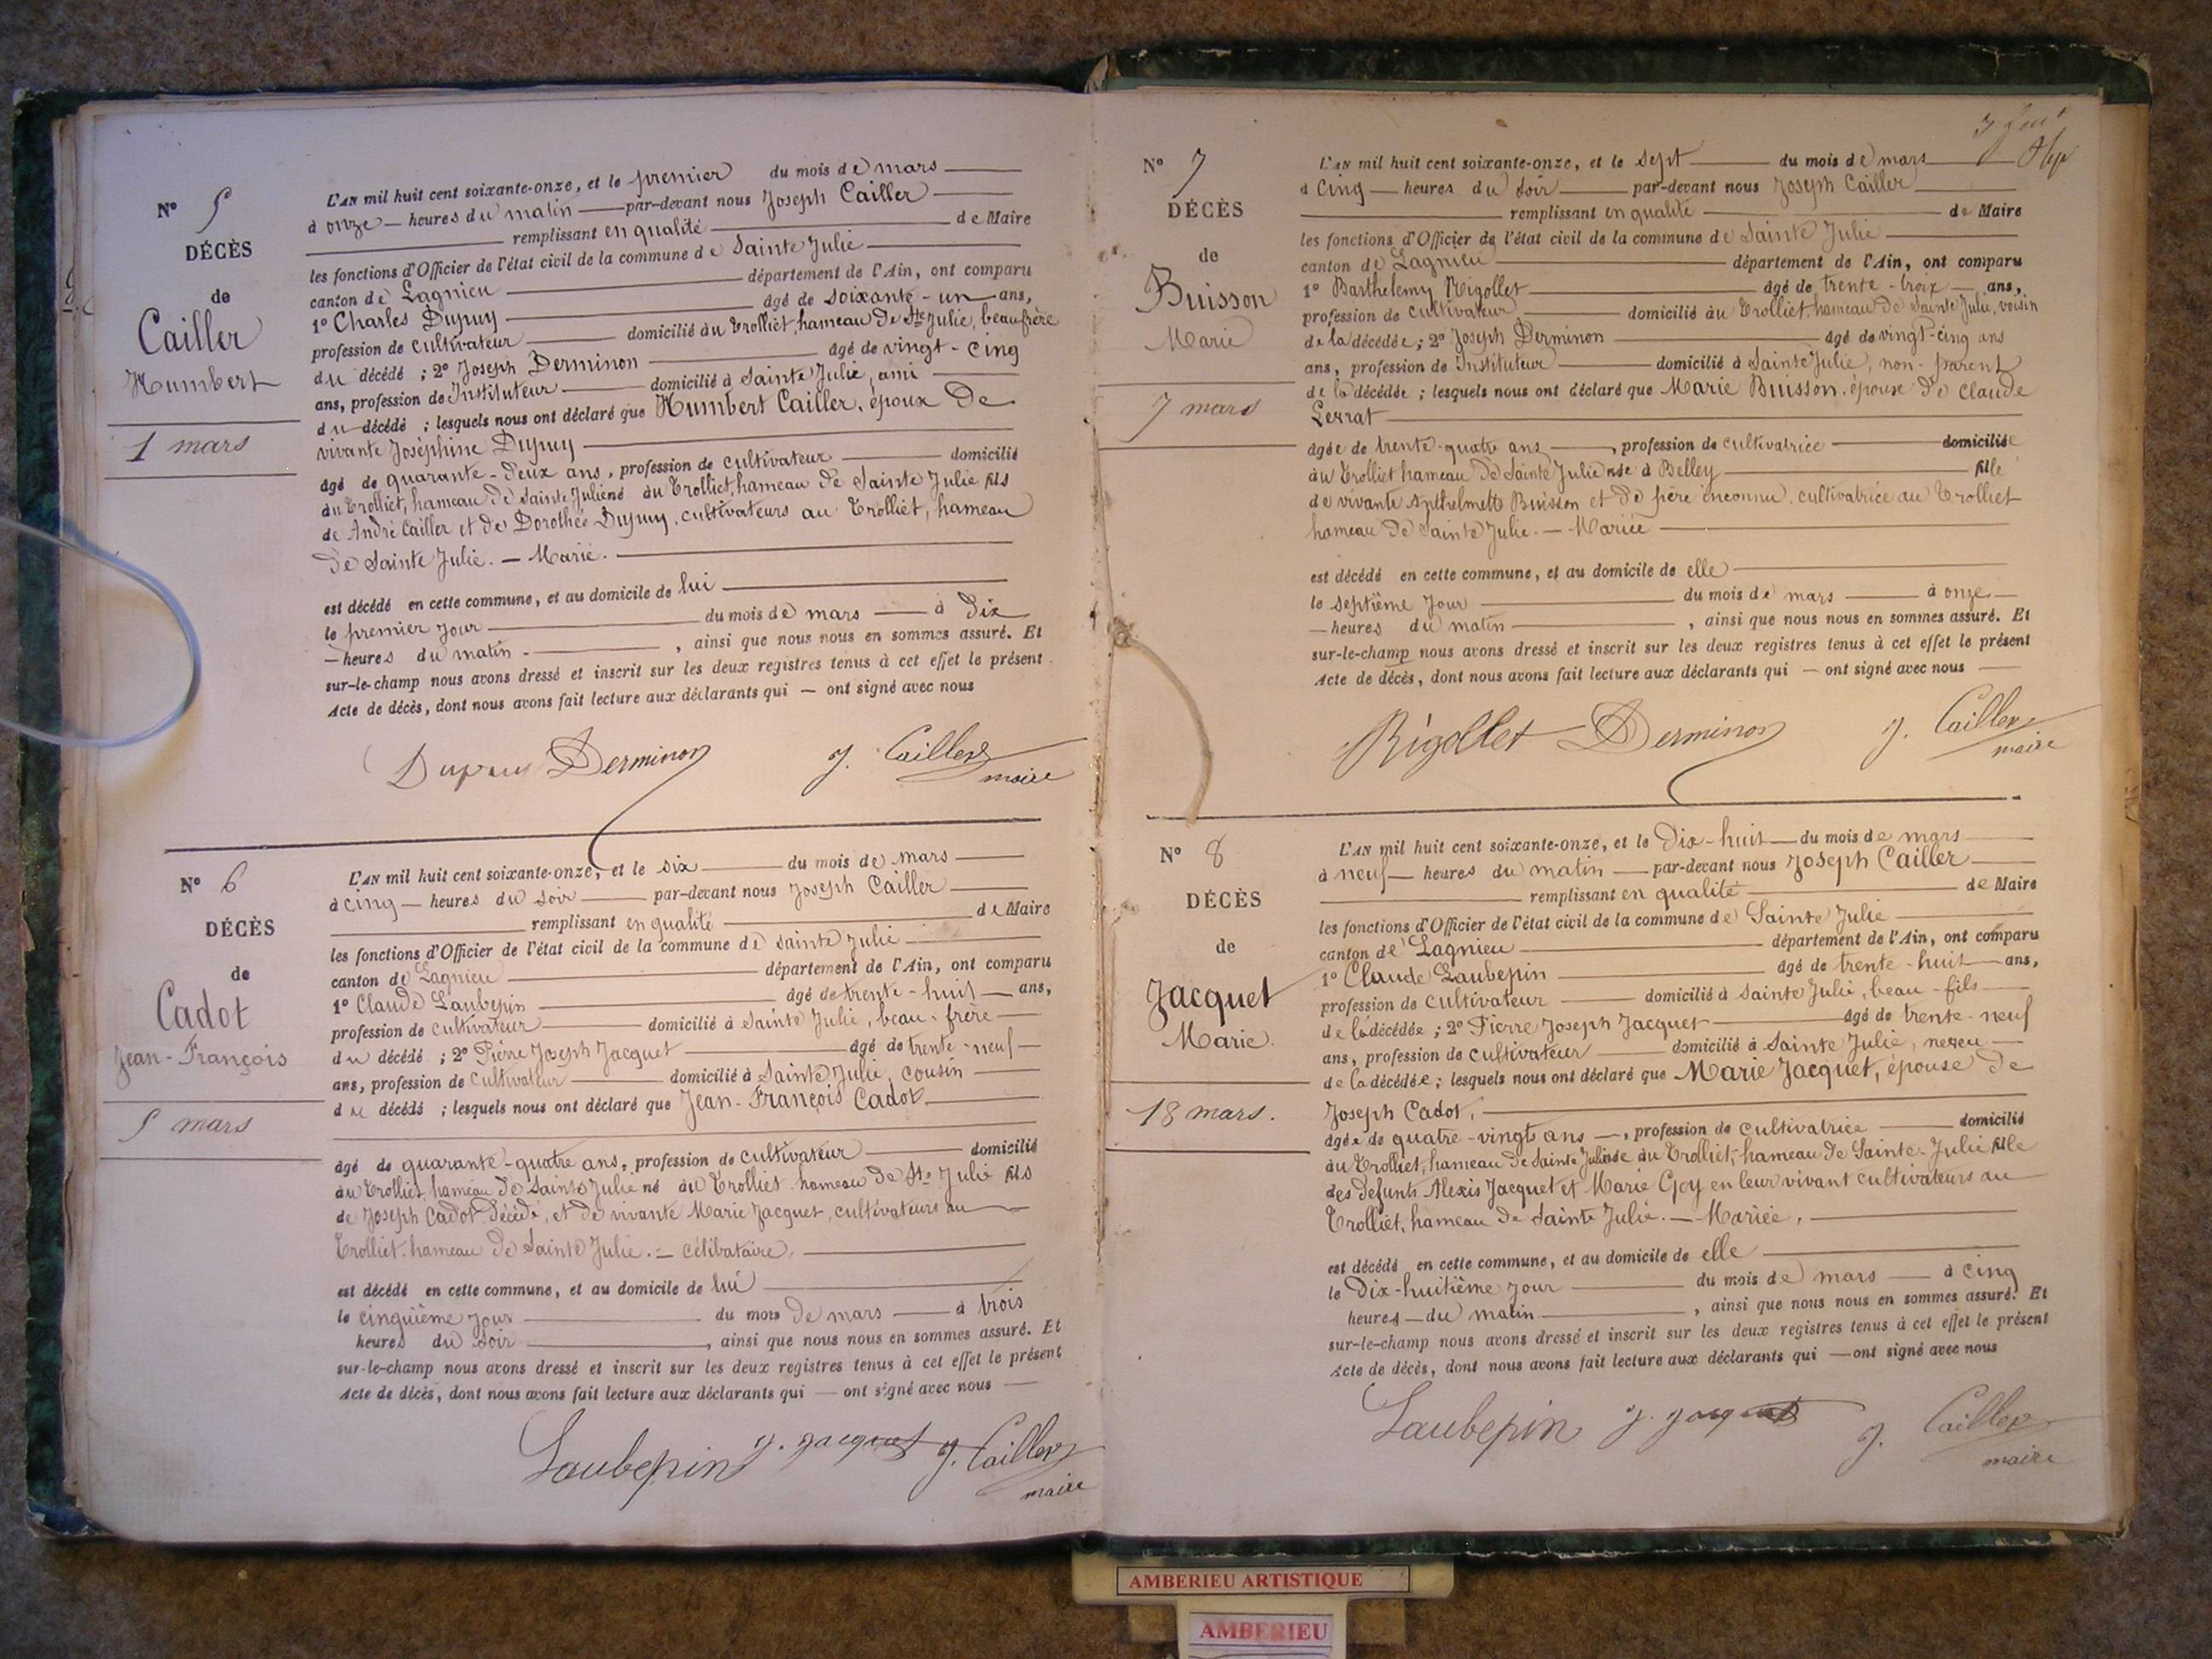 N° 5
DÉCÈS
de
Cailler
Humbert
1 mars
L'AN mil huit cent soixante-onze, et le premier du mois de mars
à onze heures du matin par-devant nous Joseph Cailler
remplissant en qualité de Maire
les fonctions d'Officier de l'état civil de la commune de Sainte Julie
canton de Lagnieu département de l'Ain, ont comparu
1° Charles Dupuy âgé de soixante-un ans,
profession de cultivateur domicilié au Trolliet, hameau de Ste Julie, beau frère
du décédé ; 2° Joseph Derminon âgé de vingt-cinq
ans, profession de Instituteur domicilié à Sainte Julie, ami
du décédé ; lesquels nous ont déclaré que Humbert Cailler, époux de
vivante Joséphine Dupuy
âgé de quarante-deux ans, profession de cultivateur domicilié
au Trolliet, hameau de Sainte Julie né au Trolliet, hameau de Sainte Julie fils
de André Cailler et de Dorothée Dupuy, cultivateurs au Trolliet, hameau
de Sainte Julie. — Marié.
est décédé en cette commune, et au domicile de lui
le premier jour du mois de mars à dix
heures du matin , ainsi que nous nous en sommes assuré. Et
sur-le-champ nous avons dressé et inscrit sur les deux registres tenus à cet effet le présent
Acte de décès, dont nous avons fait lecture aux déclarants qui — ont signé avec nous
Dupuy Derminon J. Cailler
maire
N° 6
DÉCÈS
de
Cadot
Jean-François
5 mars
L'AN mil huit cent soixante-onze, et le six du mois de mars
à cinq heures du soir par-devant nous Joseph Cailler
remplissant en qualité de Maire
les fonctions d'Officier de l'état civil de la commune de Sainte Julie
canton de Lagnieu département de l'Ain, ont comparu
1° Claude Laubepin âgé de trente-huit ans,
profession de cultivateur domicilié à Sainte Julie, beau-frère
du décédé ; 2° Pierre Joseph Jacquet âgé de trente-neuf
ans, profession de cultivateur domicilié à Sainte Julie, cousin
du décédé ; lesquels nous ont déclaré que Jean-François Cadot
âgé de quarante-quatre ans, profession de cultivateur domicilié
au Trolliet, hameau de Sainte Julie né au Trolliet hameau de Ste Julie fils
de Joseph Cadot, décédé, et de vivante Marie Jacquet, cultivateurs au
Trolliet, hameau de Sainte Julie. — célibataire,
est décédé en cette commune, et au domicile de lui
le cinquième jour du mois de mars à trois
heures du soir , ainsi que nous nous en sommes assuré. Et
sur-le-champ nous avons dressé et inscrit sur les deux registres tenus à cet effet le présent
Acte de décès, dont nous avons fait lecture aux déclarants qui — ont signé avec nous
Laubepin J. Jacquet J. Cailler
maire
N° 7
DÉCÈS
de
Buisson
Marie
7 mars
L'AN mil huit cent soixante-onze, et le sept du mois de mars
à cinq heures du soir par-devant nous Joseph Cailler
remplissant en qualité de Maire
les fonctions d'Officier de l'état civil de la commune de Sainte Julie
canton de Lagnieu département de l'Ain, ont comparu
1° Barthelemy Rigollet âgé de trente-trois ans,
profession de cultivateur domicilié au Trolliet, hameau de Sainte Julie, voisin
de la décédée ; 2° Joseph Derminon âgé de vingt-cinq ans
ans, profession de Instituteur domicilié à Sainte Julie, non-parent
de la décédée ; lesquels nous ont déclaré que Marie Buisson, épouse de Claude
Serrat
âgée de trente-quatre ans, profession de cultivatrice domiciliée
au Trolliet hameau de Sainte Julie née à Belley fille
de vivante Anthelmette Buisson et de père inconnu, cultivatrice au Trolliet
hameau de Sainte Julie. — Mariée
est décédé en cette commune, et au domicile de elle
le septième jour du mois de mars à onze
heures du matin , ainsi que nous nous en sommes assuré. Et
sur-le-champ nous avons dressé et inscrit sur les deux registres tenus à cet effet le présent
Acte de décès, dont nous avons fait lecture aux déclarants qui — ont signé avec nous
Rigollet Derminon J. Cailler
maire
N° 8
DÉCÈS
de
Jacquet
Marie
18 mars.
L'AN mil huit cent soixante-onze, et le dix-huit du mois de mars
à neuf heures du matin par-devant nous Joseph Cailler
remplissant en qualité de Maire
les fonctions d'Officier de l'état civil de la commune de Sainte Julie
canton de Lagnieu département de l'Ain, ont comparu
1° Claude Laubepin âgé de trente-huit ans,
profession de cultivateur domicilié à Sainte Julie, beau-fils
de la décédée ; 2° Pierre Joseph Jacquet âgé de trente-neuf
ans, profession de cultivateur domicilié à Sainte Julie, neveu
de la décédée ; lesquels nous ont déclaré que Marie Jacquet, épouse de
Joseph Cadot,
âgée de quatre-vingts ans, profession de cultivatrice domicilié
au Trolliet, hameau de Sainte Julie née au Trolliet, hameau de Sainte-Julie fille
des défunts Alexis Jacquet et Marie Goy en leur vivant cultivateurs au
Trolliet, hameau de Sainte Julie. — Mariée,
est décédé en cette commune, et au domicile de elle
le dix-huitième jour du mois de mars à cinq
heures du matin , ainsi que nous nous en sommes assuré. Et
sur-le-champ nous avons dressé et inscrit sur les deux registres tenus à cet effet le présent
Acte de décès, dont nous avons fait lecture aux déclarants qui — ont signé avec nous
Laubepin J. Jacquet J. Cailler
maire
AMBERIEU ARTISTIQUE
AMBERIEU